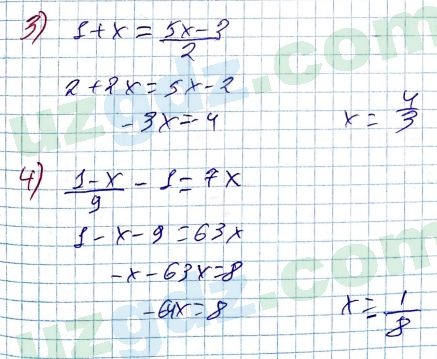 3) 1+x = 5x-3/2
2+2x=5x-2
-3x=-4 x = 4/3
4) 1-x/9 - 1 = 7x
1-x-9=63x
-x-63x=8
-64x=8 x = 1/8
uzgdz.com